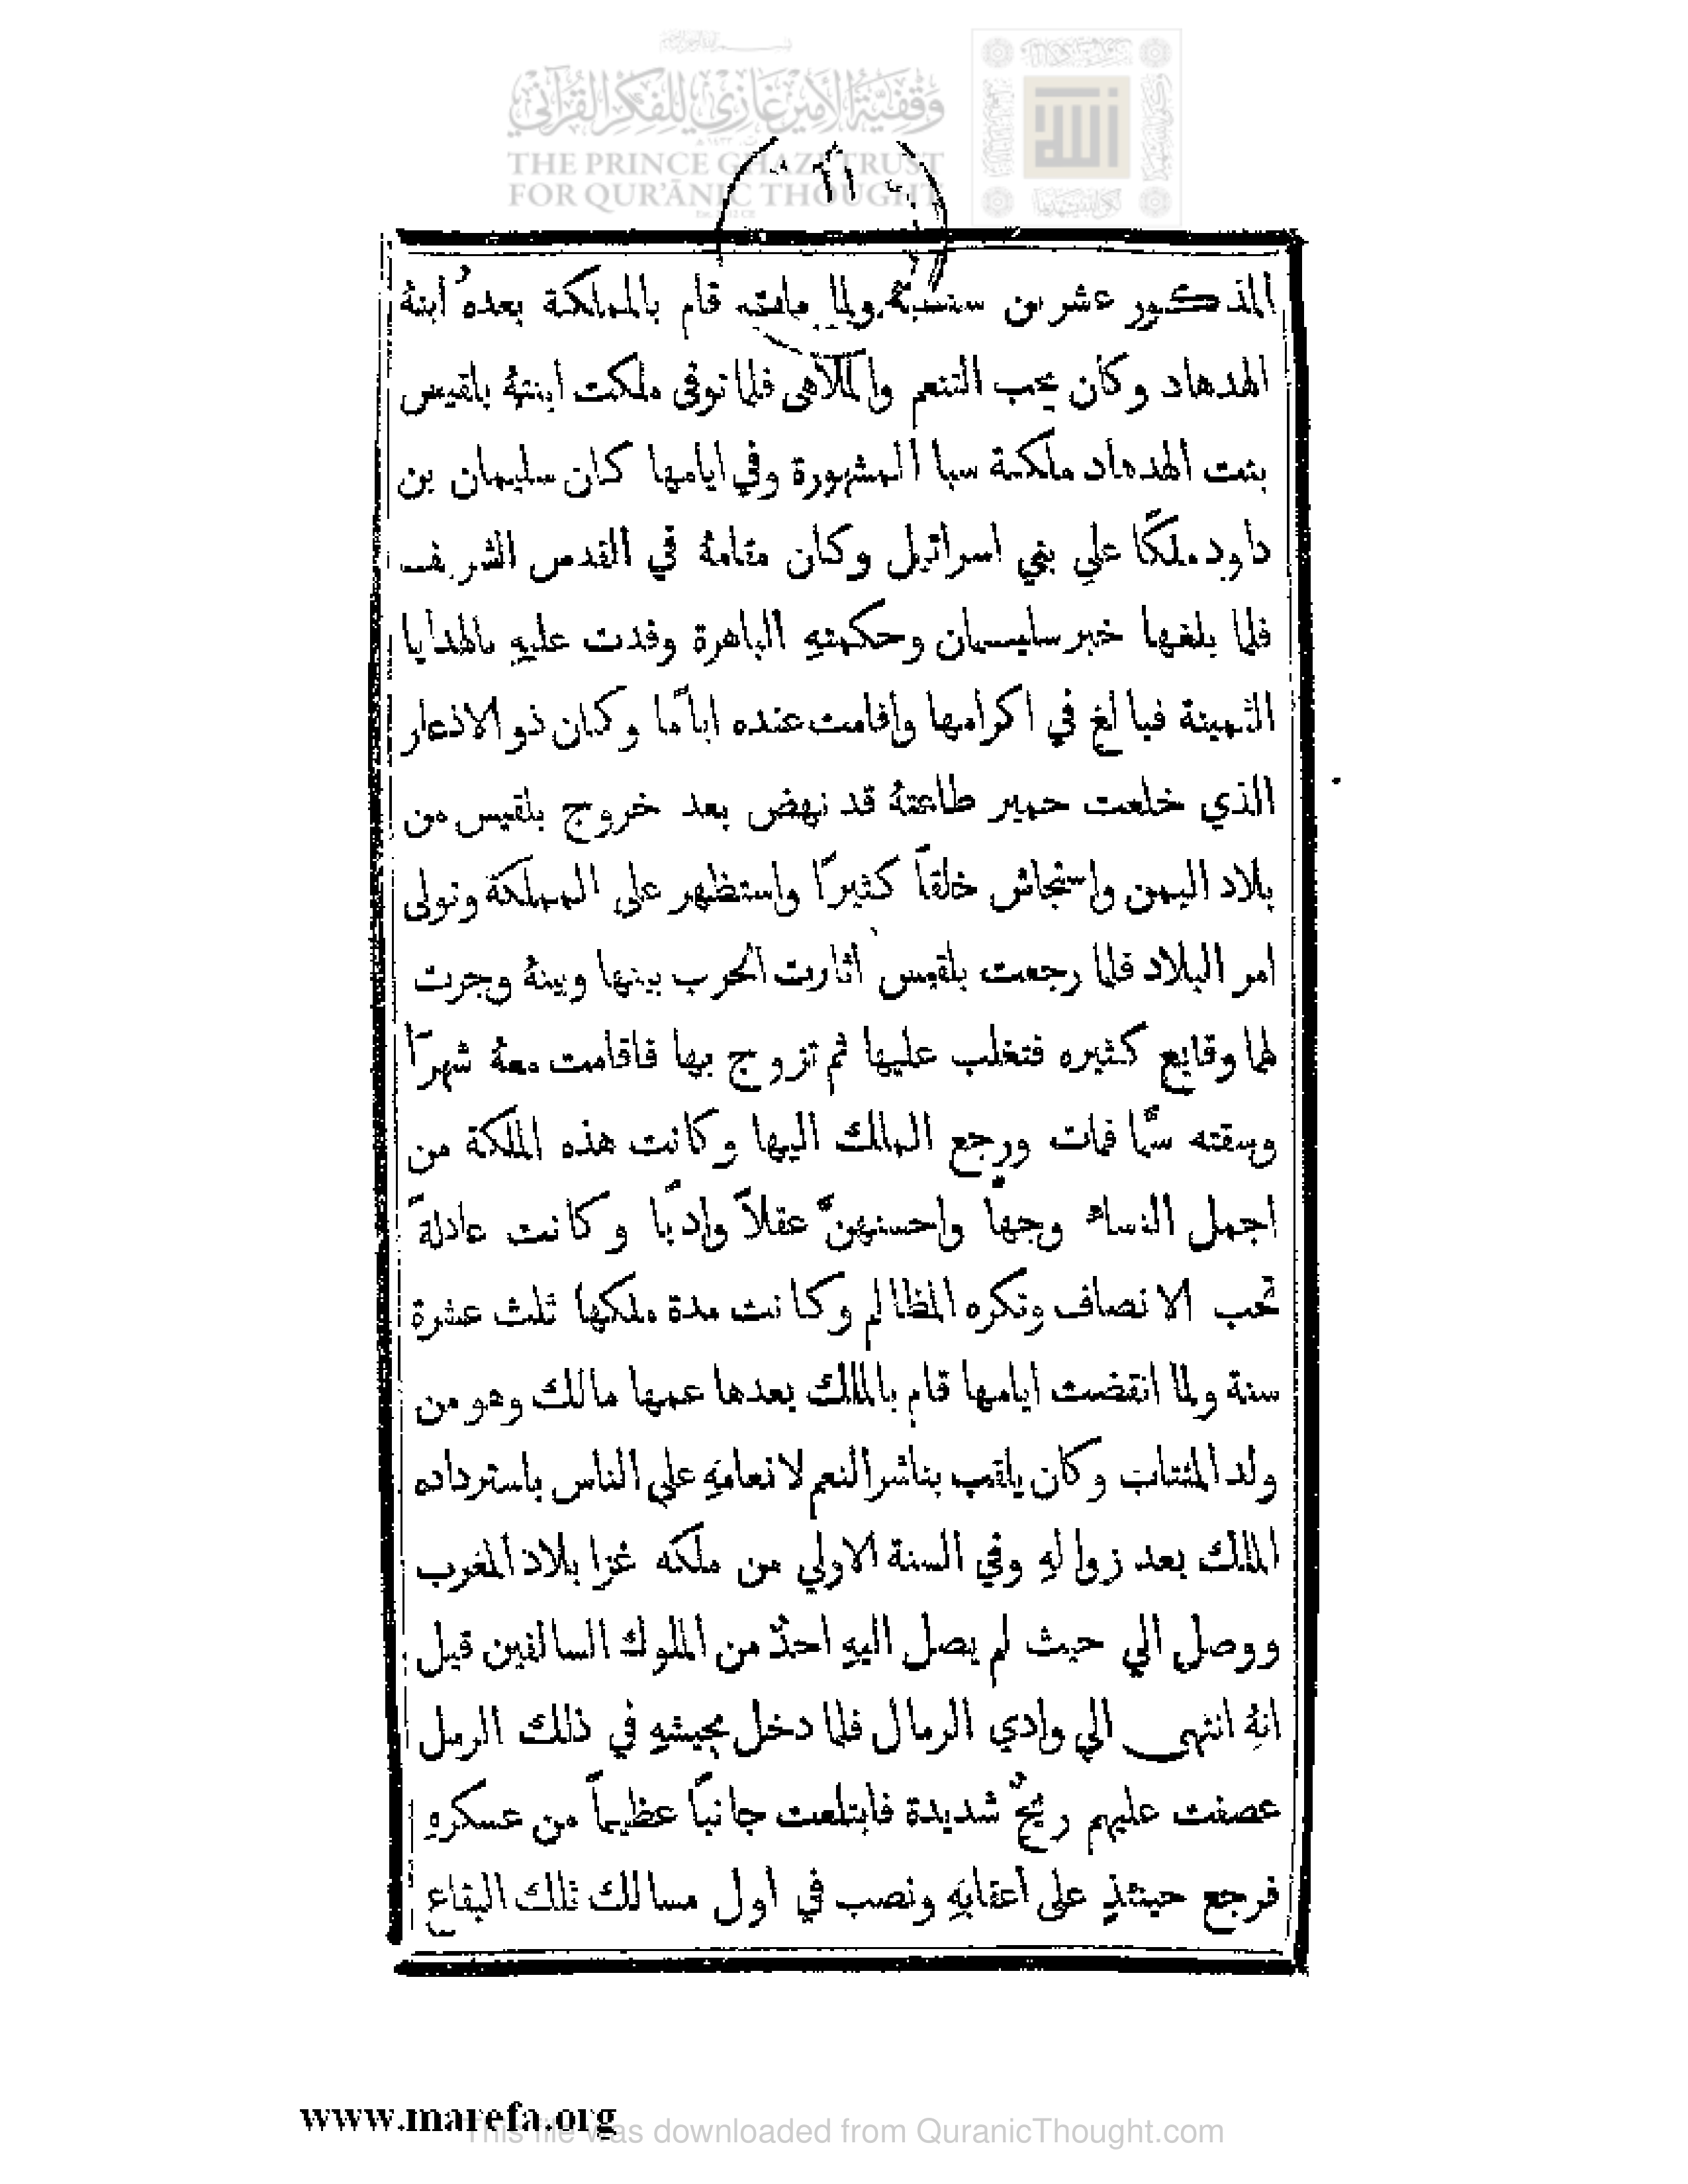 وقفية الأمير غازي للفكر القرآني
THE PRINCE GHAZI TRUST
FOR QUR'ĀNIC THOUGHT
المذكور عشرين سنة ولما مات قام بالمملكة بعدهُ ابنهُ
الهدهاد وكان يحب التنعم والملاهى فلما توفى ملكت ابنتهُ بلقيس
بنت الهدهاد ملكة سبا المشهورة وفي ايامها كان سليمان بن
داود ملكًا علي بني اسرائيل وكان مقامهُ في القدس الشريف
فلما بلغها خبر سليمان وحكمتهِ الباهرة وفدت عليهِ بالهدايا
الثمينة فبالغ في اكرامها واقامت عنده ايامًا وكان ذو الاذعار
الذي خلعت حمير طاعتهُ قد نهض بعد خروج بلقيس من
بلاد اليمن واستجاش خلقًا كثيرًا واستظهر على المملكة وتولى
امر البلاد فلما رجعت بلقيس اثارت الحرب بينها وبينهُ وجرت
لها وقايع كثيره فتغلب عليها ثم تزوج بها فاقامت معهُ شهرًا
وسقته سمًّا فمات ورجع الملك اليها وكانت هذه الملكة من
اجمل النساء وجهًا واحسنهنَّ عقلاً وادبًا وكانت عادلةً
تحب الانصاف وتكره المظالم وكانت مدة ملكها ثلث عشرة
سنة ولما انقضت ايامها قام بالملك بعدها عمها مالك وهو من
ولد المنتاب وكان يلقب بناشر النعم لانعامهِ علي الناس باسترداده
الملك بعد زوالهِ وفي السنة الاولي من ملكه غزا بلاد المغرب
ووصل الي حيث لم يصل اليهِ احدٌ من الملوك السالفين قيل
انهِ انتهى الي وادي الرمال فلما دخل بجيشهِ في ذلك الرمل
عصفت عليهم ريحٌ شديدة فابتلعت جانبًا عظيمًا من عسكرهِ
فرجع حينئذٍ على اعقابهِ ونصب في اول مسالك تلك البقاع
www.marefa.org
This file was downloaded from QuranicThought.com